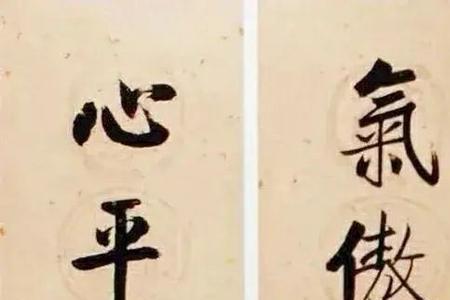 氣傲
心平